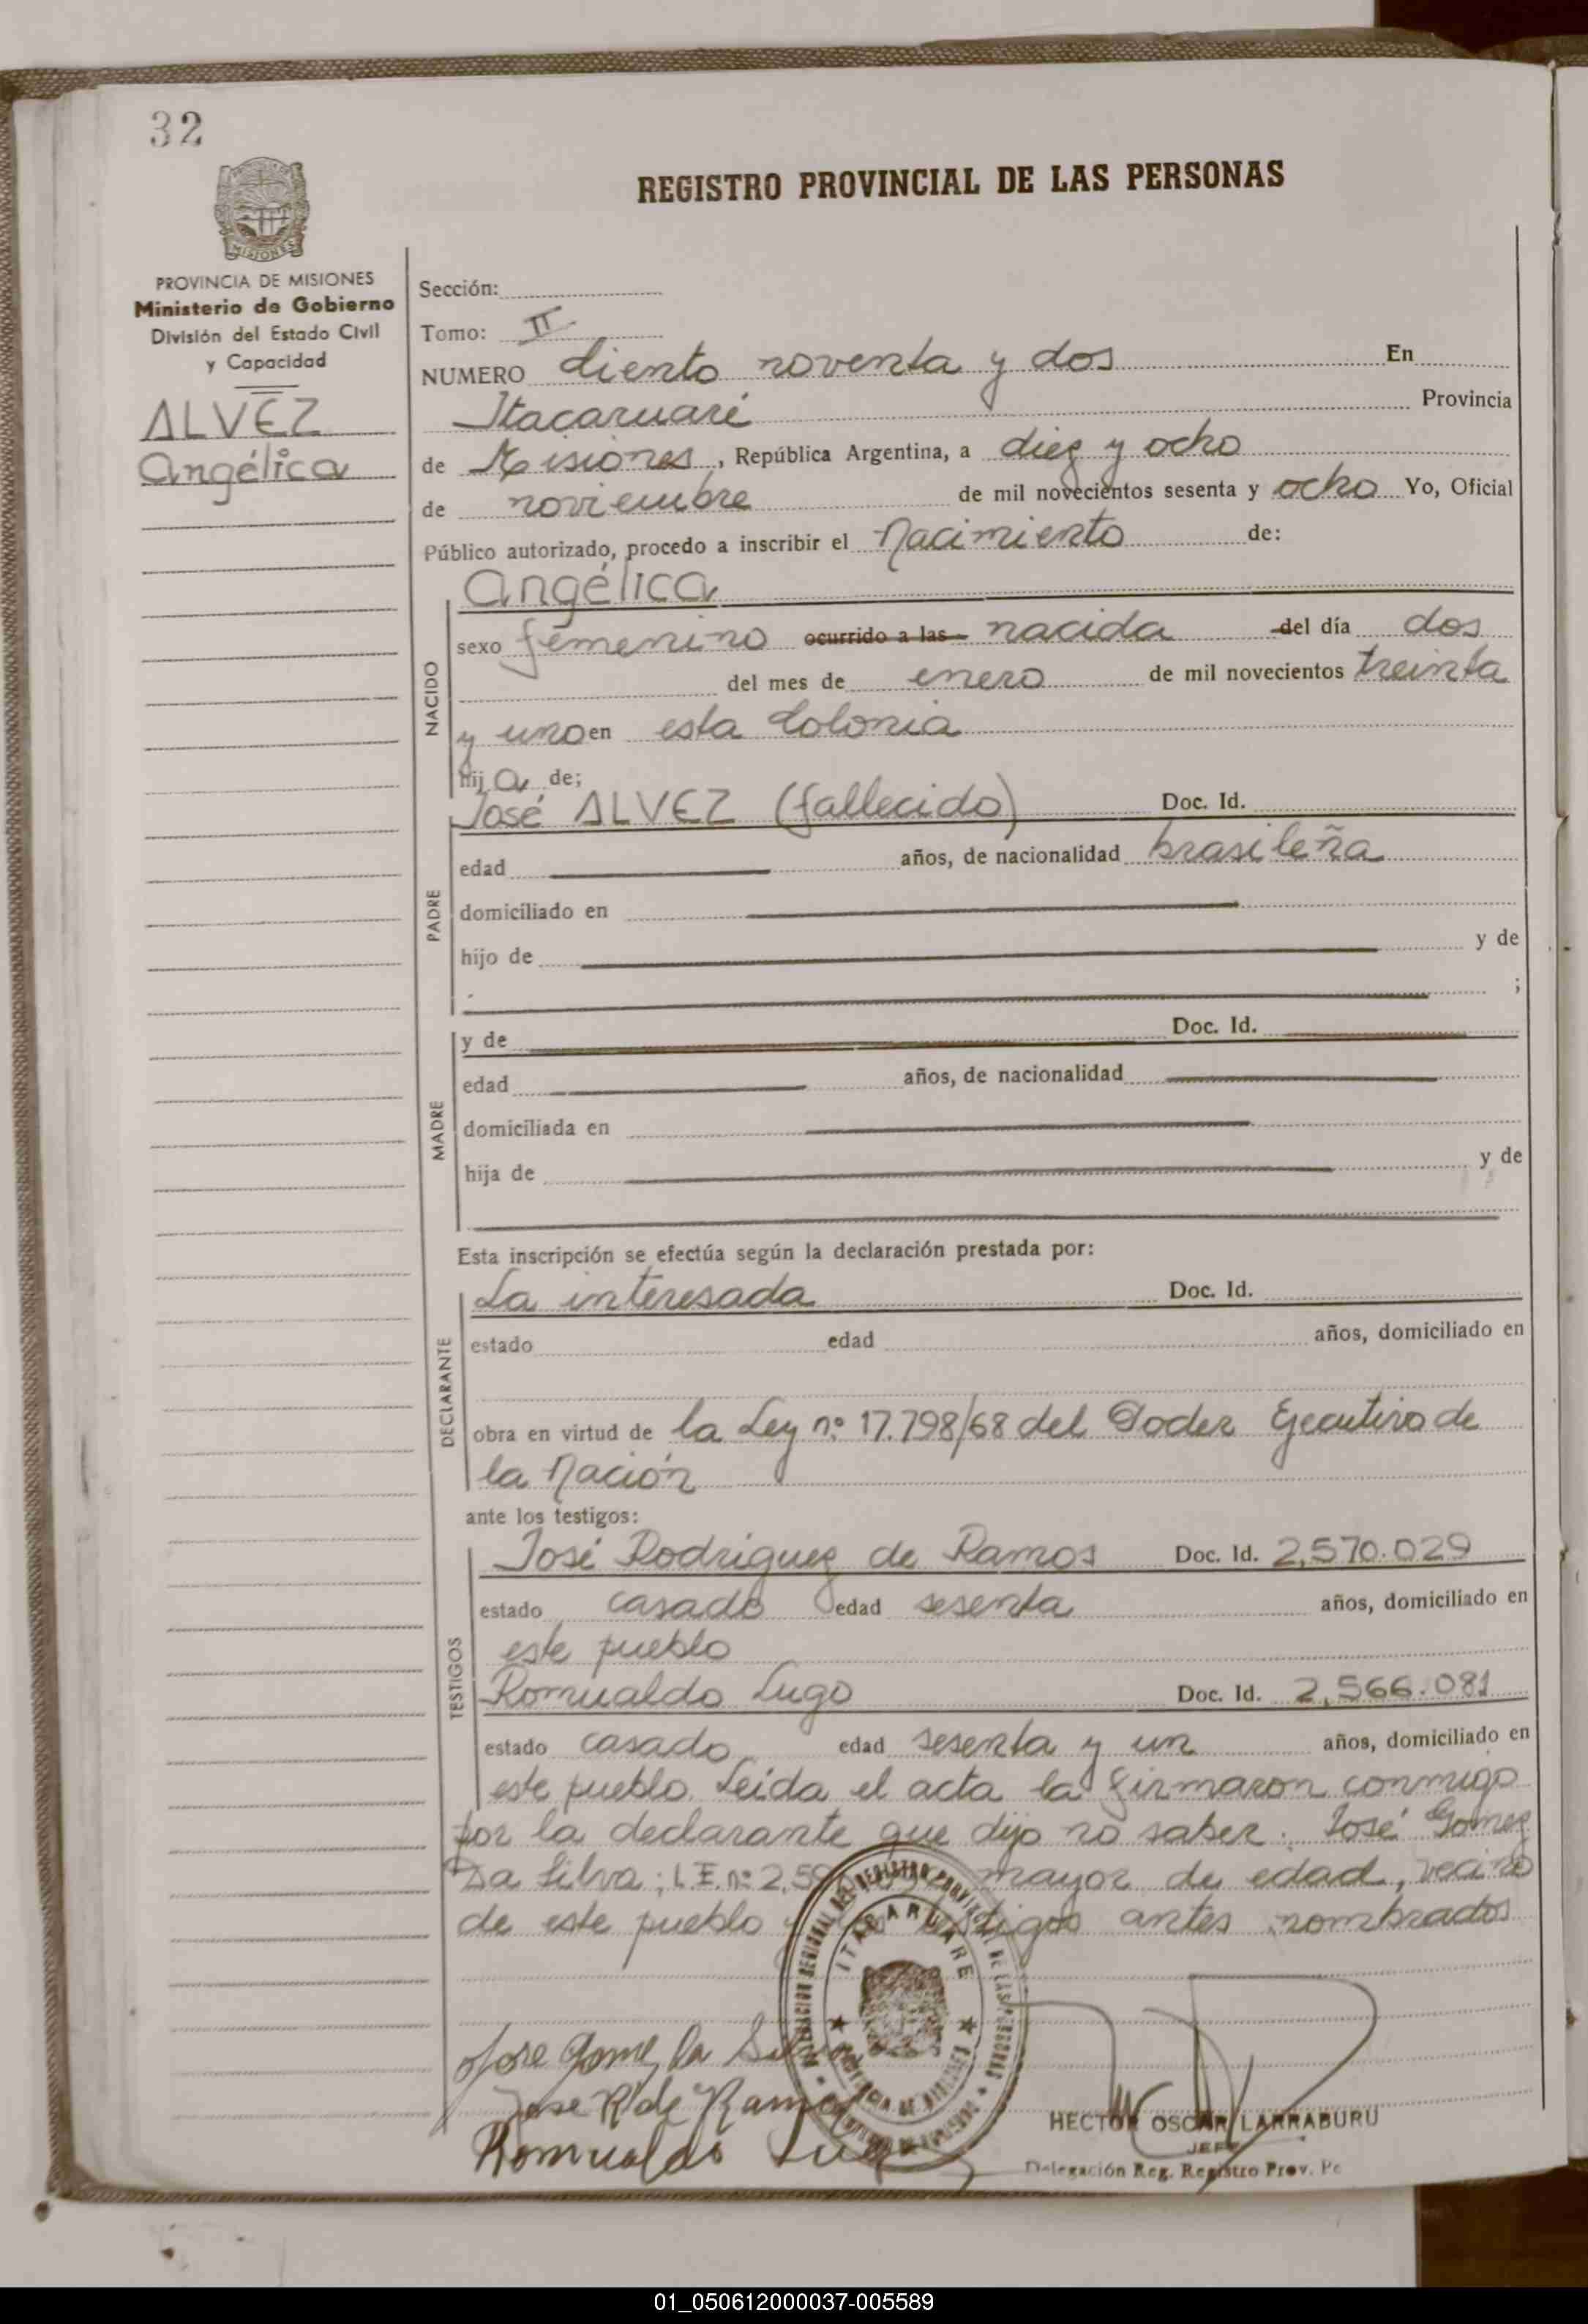 32
REGISTRO PROVINCIAL DE LAS PERSONAS
MISIONES
PROVINCIA DE MISIONES
Ministerio de Gobierno
División del Estado Civil
y Capacidad
ALVEZ
Angélica
Sección:
Tomo: II
NUMERO Ciento noventa y dos En
Itacaruaré Provincia
de Misiones, República Argentina, a diez y ocho
de noviembre de mil novecientos sesenta y ocho Yo, Oficial
Público autorizado, procedo a inscribir el Nacimiento de:
Angélica
NACIDO
sexo femenino ocurrido a las nacida del día dos
del mes de enero de mil novecientos treinta
y uno en esta Colonia
hija de;
José ALVEZ (fallecido) Doc. Id.
PADRE
edad años, de nacionalidad brasileña
domiciliado en
hijo de y de
;
MADRE
y de Doc. Id.
edad años, de nacionalidad
domiciliada en
hija de y de
Esta inscripción se efectúa según la declaración prestada por:
DECLARANTE
La interesada Doc. Id.
estado edad años, domiciliado en
obra en virtud de la Ley nº 17.798/68 del Poder Ejecutivo de
la Nación
ante los testigos:
TESTIGOS
José Rodriguez de Ramos Doc. Id. 2,570.029
estado casado edad sesenta años, domiciliado en
este pueblo
Romualdo Lugo Doc. Id. 2,566.081
estado casado edad sesenta y un años, domiciliado en
este pueblo. Leida el acta la firmaron conmigo
por la declarante que dijo no saber. José Gomez
Da Silva; L.E. nº mayor de edad, vecino
de este pueblo y testigos antes nombrados
ITACARUARE
Jose Gomez da Silva
Jose R de Ramos
Romualdo Lugo
HECTOR OSCAR LARRABURU
JEFE
Delegación Reg. Registro Prov. Pe
01_050612000037-005589